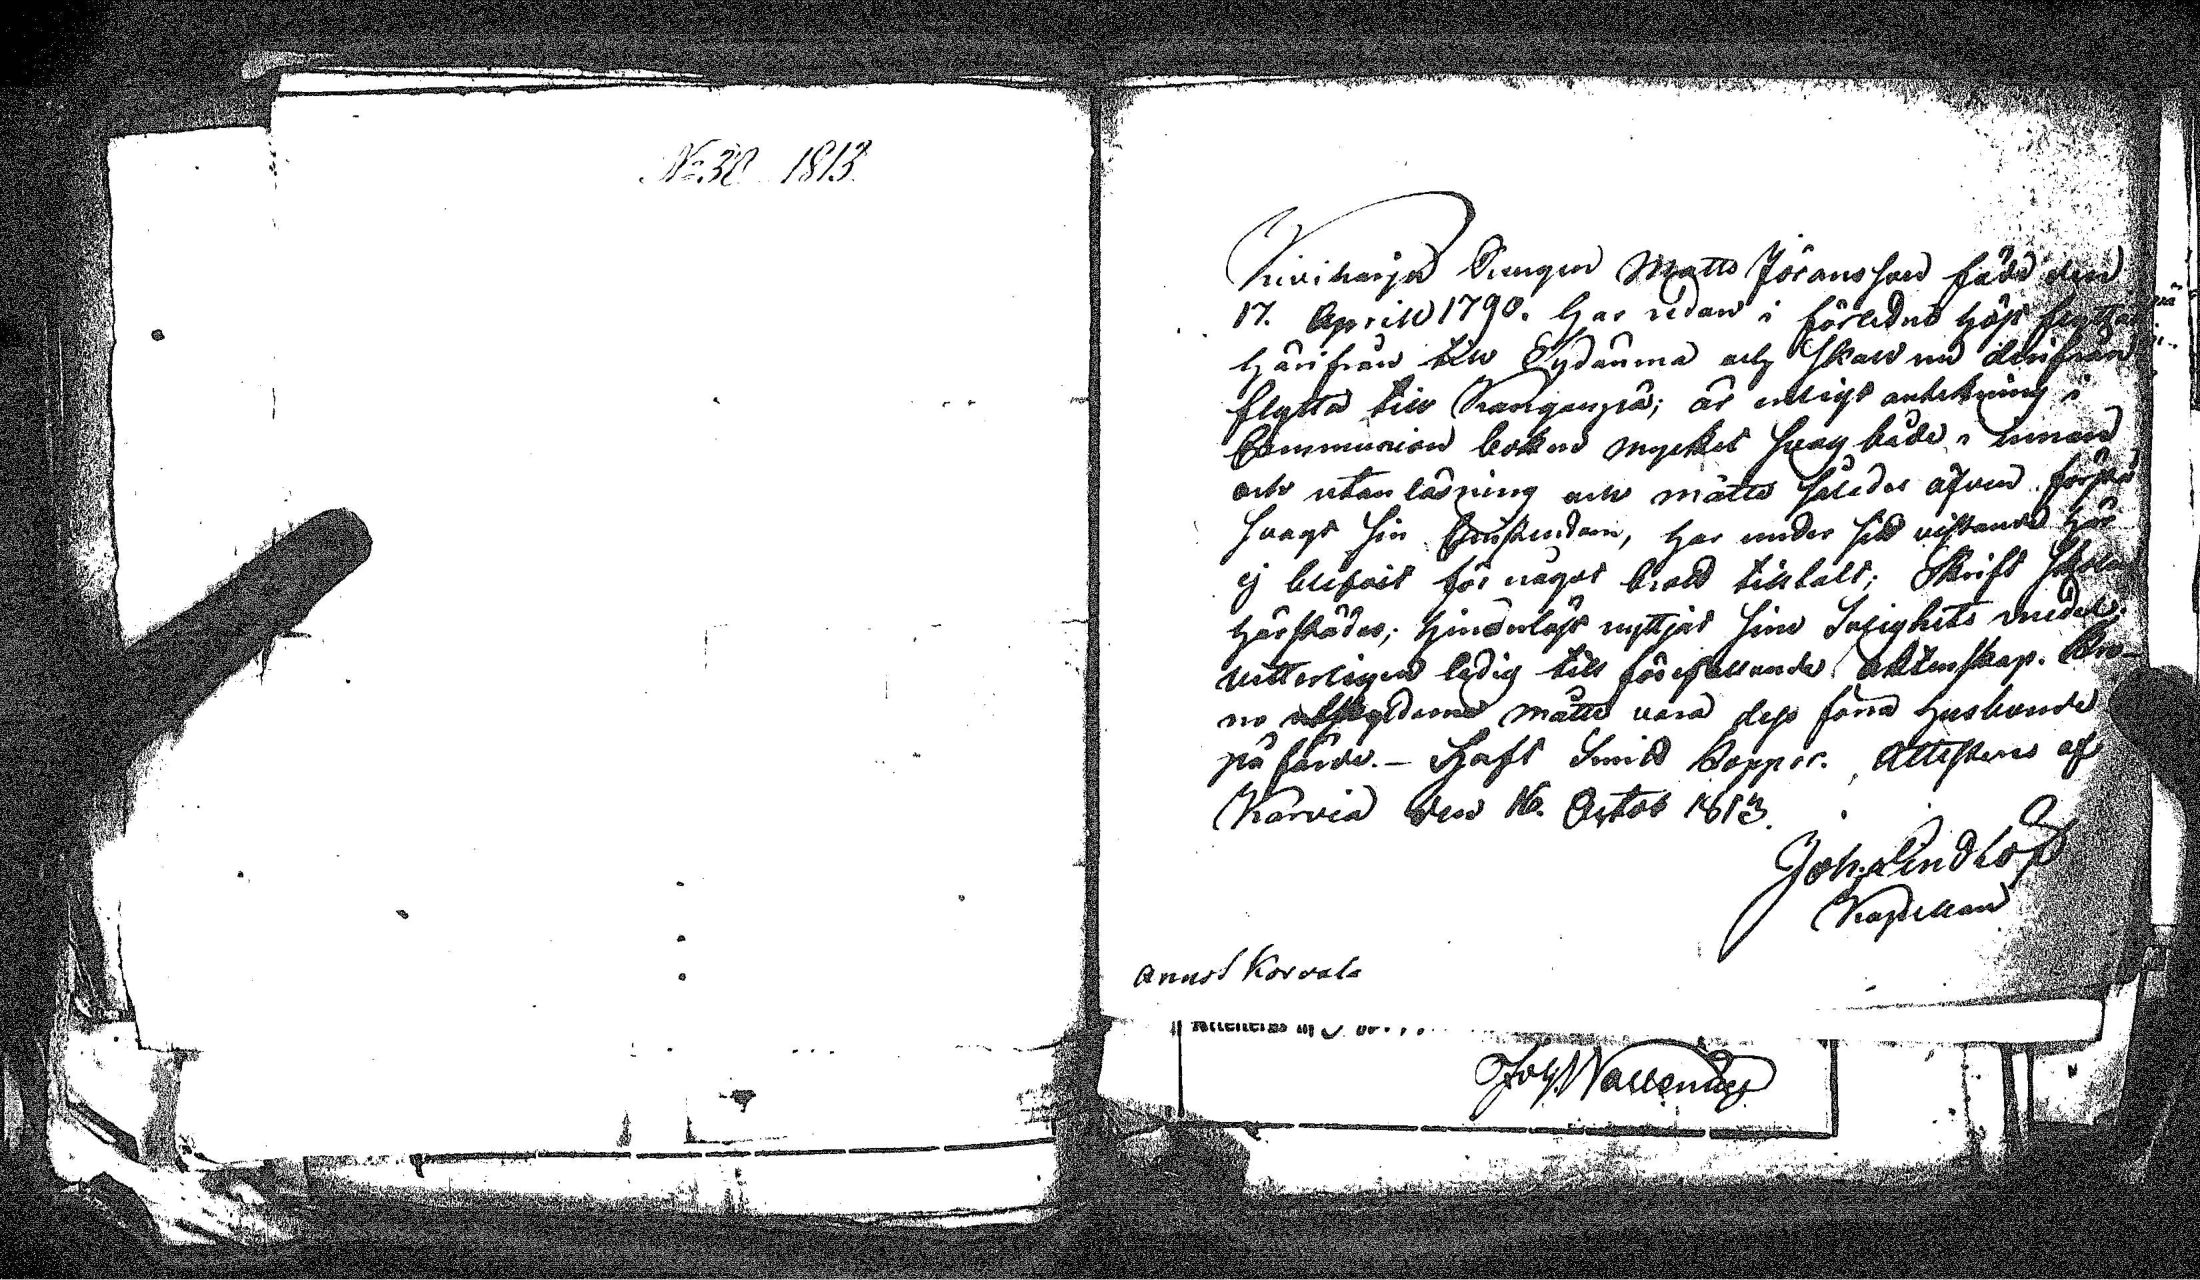 No 30 1813
Kiviharju Drengen Matts Jöransson född den
17. April 1790. har redan i förledne höst flyttat
härifrån till Sydänma och skall nu derifrån
flytta till Kanganpä; är enligt antekning i
Communion boken mycket svag både i innan
och utan läsning och måtte således äfven förstå
svagt sin Christendom, har under sitt vistande här
ej blifvit för något brott tilltalt; Skrift skolan
härstädes; hinderlöst nyttjat sine Salighets medel.
vitterligen ledig till förefallande äktenskap. Kro-
no utskylderne måtte vara dess förra husbonde
på förde. — Haft Smitt Koppor. Attesteras af
Karvia den 16. Octob 1813.
Joh. Lindlöf
Kapellan
Korvala
Joh. Wallenius